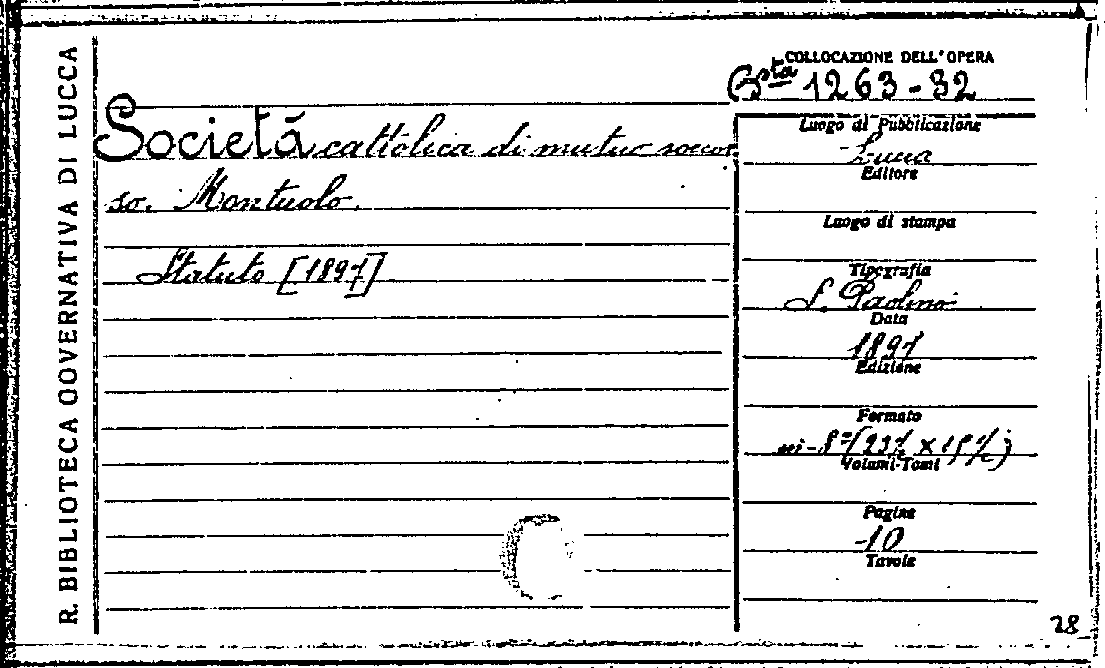 R. BIBLIOTECA GOVERNATIVA DI LUCCA
COLLOCAZIONE DELL'OPERA
Bsta 1263-32
Società cattolica di mutuo soccor
so. Montuolo.
Statuto [1897]
Luogo di Pubblicazione
Lucca
Editore
Luogo di stampa
Tipografia
S. Paolino
Data
1897
Edizione
Formato
in-8°
Volumi-Tomi
Pagine
10
Tavole
28